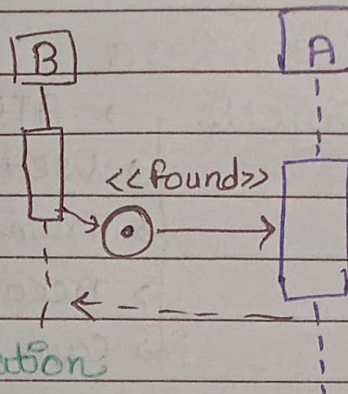 B A
<<found>>
ation